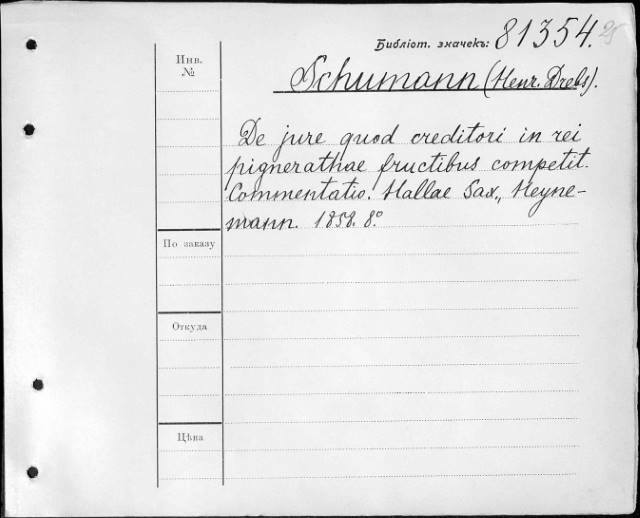 Библіот. значекъ: 81354.
Инв. №
Schumann (Henr. Drebs).
De jure quod creditori in rei
pignerathae fructibus competit.
Commentatio. Hallae Sax., Heyne-
mann. 1858. 8º
По заказу
Откуда
Цѣна